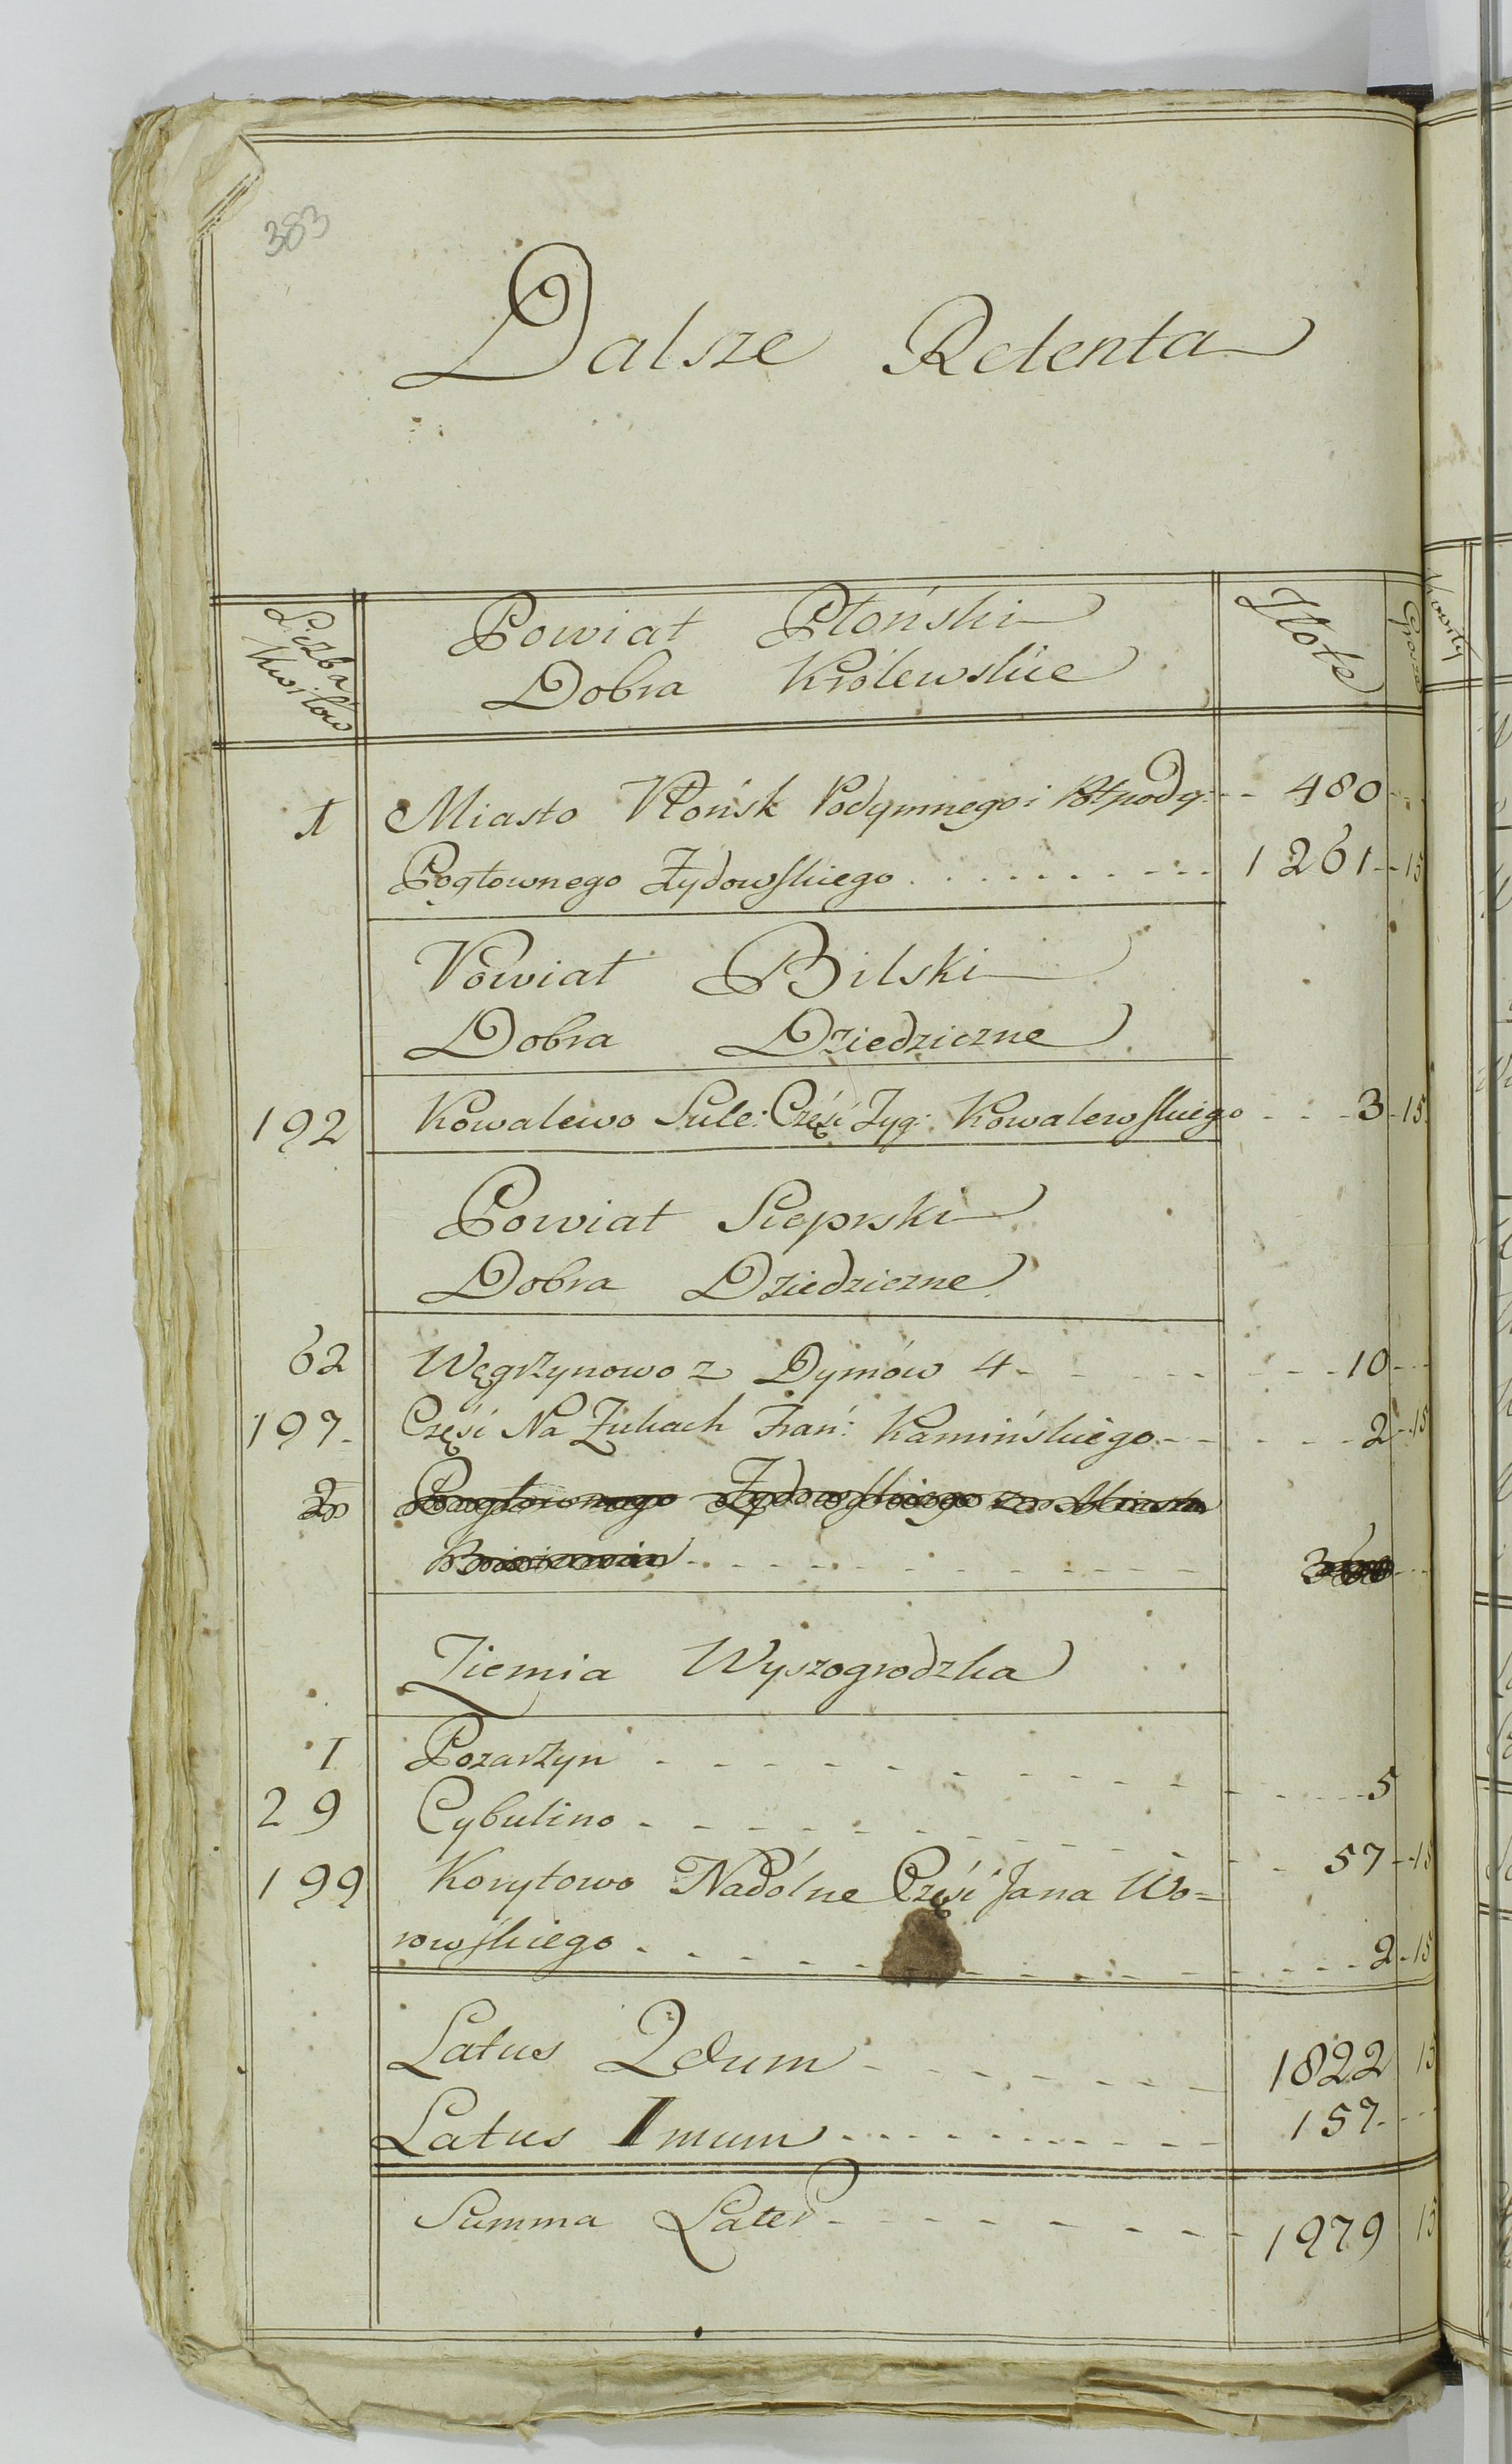 383
Dalsze Retenta
Liczba Kwitow
Powiat Płoński
Dobra Królewskie
Złote
Grosze
1 Miasto Płońsk Podymnego i Półpody: 480
Pogłownego Żydowskiego 1261 15
Powiat Bilski
Dobra Dziedziczne
192 Kowalewo Sule: Część Zyg: Kowalewskiego 3 15
Powiat Sieprski
Dobra Dziedziczne
62 Węgrzynowo z Dymów 4 10
197 Część Na Żukach Fran: Kamińskiego 2 15
2 Pogłownego Żydowskiego za Miasto
360
Ziemia Wyszogrodzka
1 Pozarzyn 5
29 Cybulino 57 15
199 Korytowo Nadólne Część Jana Wo=
rowskiego 2 15
Latus 2dum 1822 15
Latus Imum 157
Summa Later 1979 15